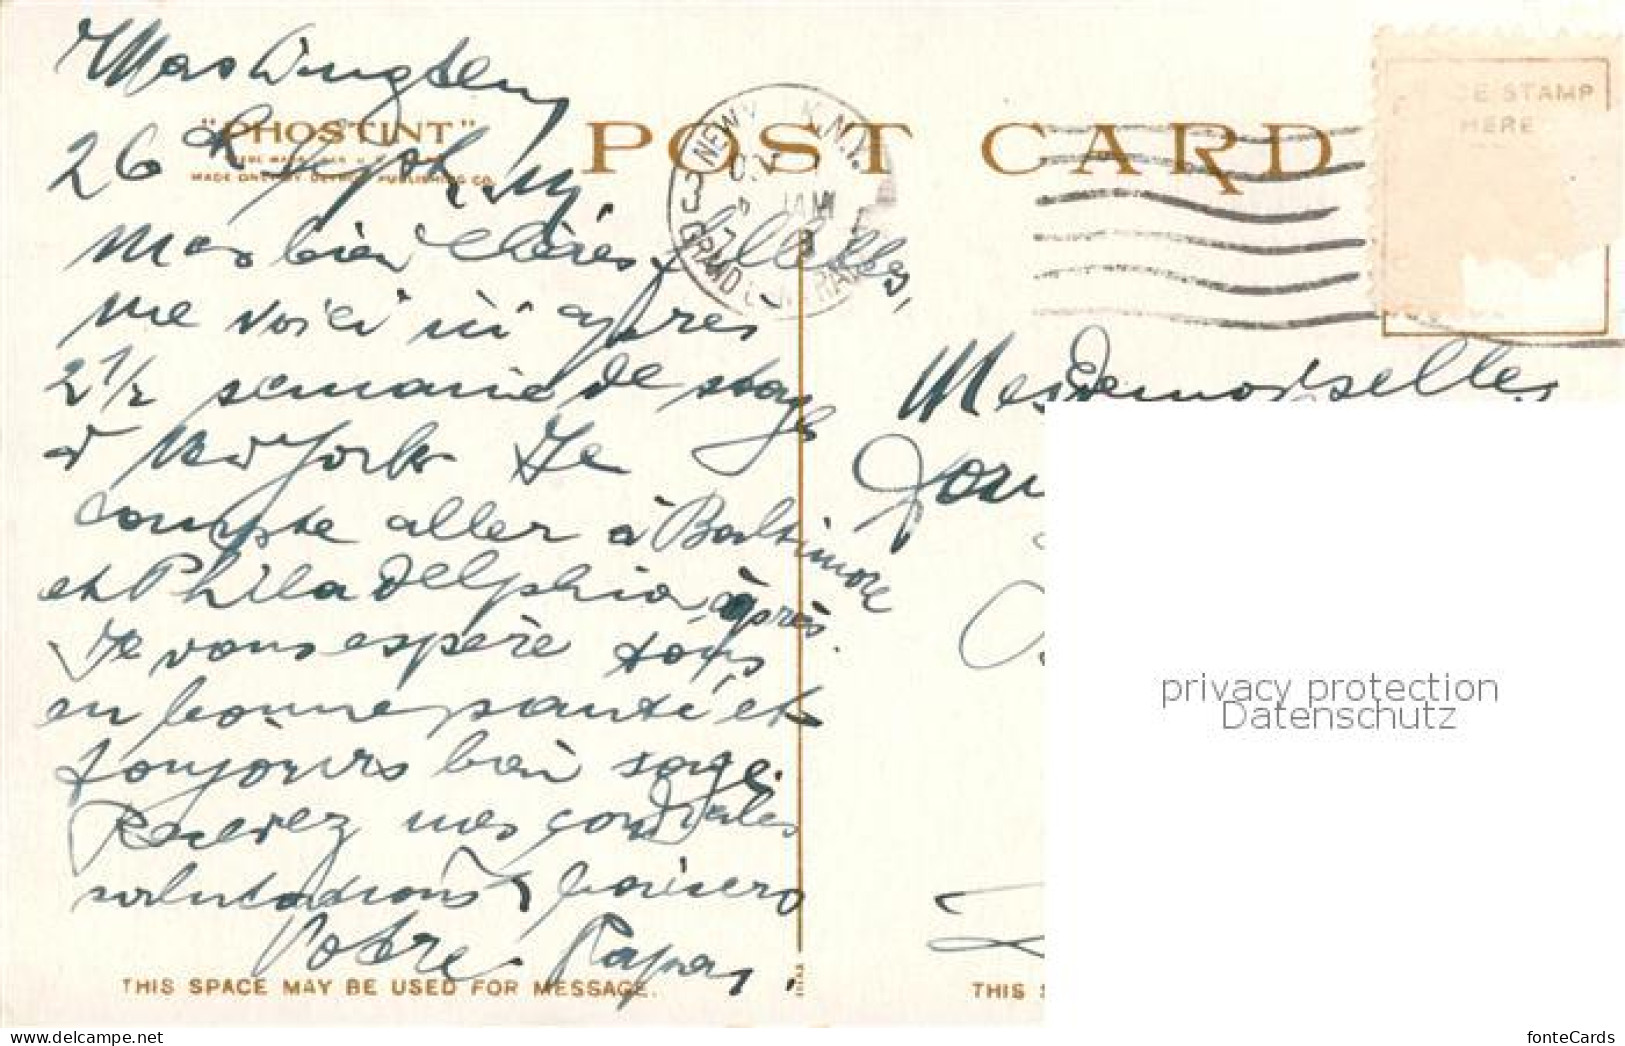 Washington
26 Sept.
"PHOSTINT"
MADE ONLY BY DETROIT PUBLISHING CO.
POST CARD
PLACE STAMP
HERE
NEW YORK, N.Y.
GRAND CENTRAL
Mes bien chères filletes,
me voici ici apres
2 1/2 semaine de stage
à New York Je
compte aller à Baltimore
et Philadelphia après.
Je vous espère tous
en bonne santé et
toujours bien sage.
Recevez mes cordiales
salutations, baisers
Votre Papa,
Mesdemoiselles
THIS SPACE MAY BE USED FOR MESSAGE.
THIS
privacy protection
Datenschutz
fonteCards